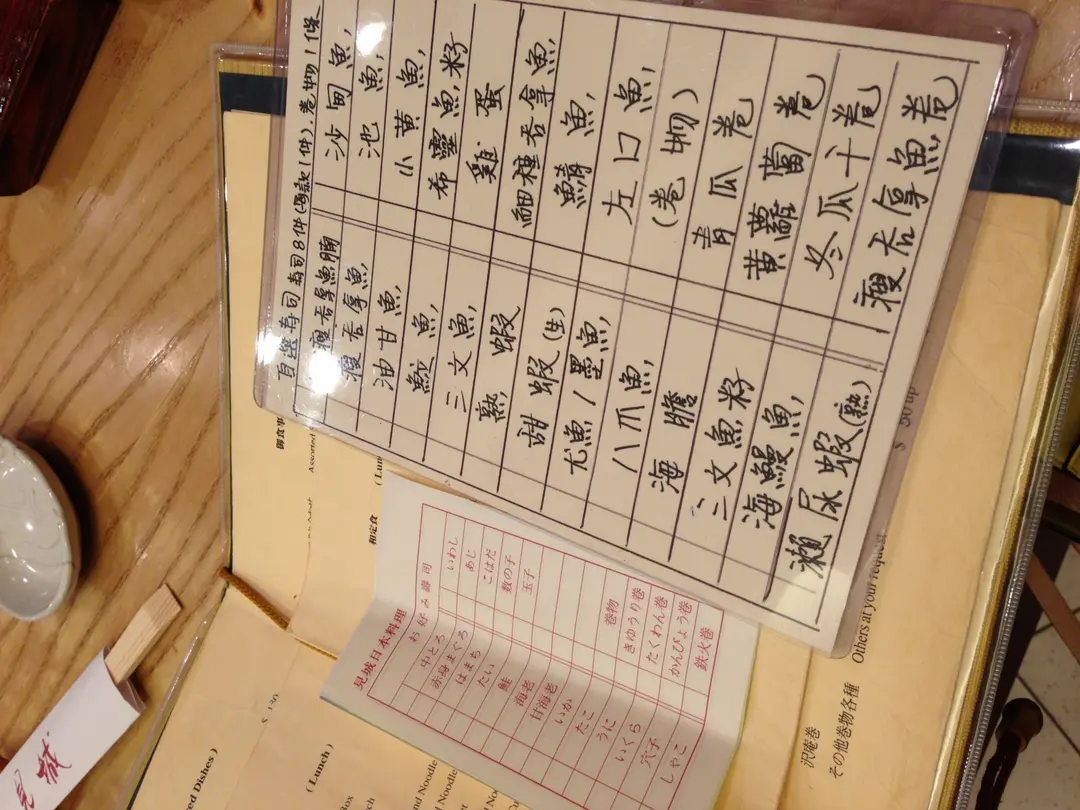 自選寿司 寿司8件(每款1件), 卷物1條
沙甸魚,
池魚,
小黄魚,
希靈魚籽
雞蛋
細種吞拿魚
鯖魚,
左口魚,
(卷物)
青瓜卷
黄蘿蔔卷
冬瓜干卷
瘦吞拿魚卷
瘦吞拿魚腩
瘦吞拿魚,
油甘魚,
鮫魚,
三文魚,
熟蝦
甜蝦(生)
尤魚/墨魚,
八爪魚,
海膽
三文魚籽
海鰻魚,
瀨尿蝦(熟)
見城日本料理
お好み壽司
いわし
あじ
こはだ
数の子
玉子
巻物
きゆうり巻
たくわん巻
かんぴょう巻
鉄火巻
中とろ
赤身まぐろ
はまち
たい
鮭
海老
甘海老
いか
たこ
うに
いくら
穴子
しゃこ
御食事
Assorted
和定食
(Lun
$ 50 up
沢庵巻
その他巻物各種
Others at your request
ed Dishes )
(Lunch)
nd Noodle